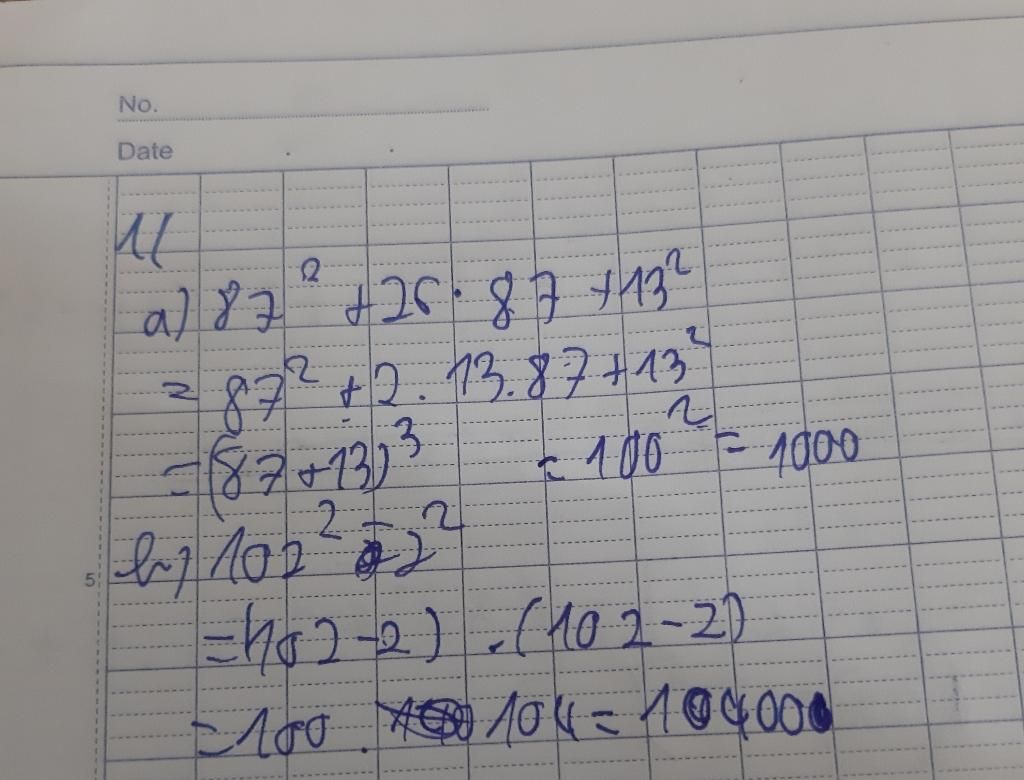 No.
Date
1/
a) 87² + 26 . 87 + 13²
= 87² + 2 . 13 . 87 + 13²
= (87 + 13)³ = 100² = 1000
5 b) 102² - 2²
= (102 - 2) . (102 - 2)
= 100 . 104 = 104000